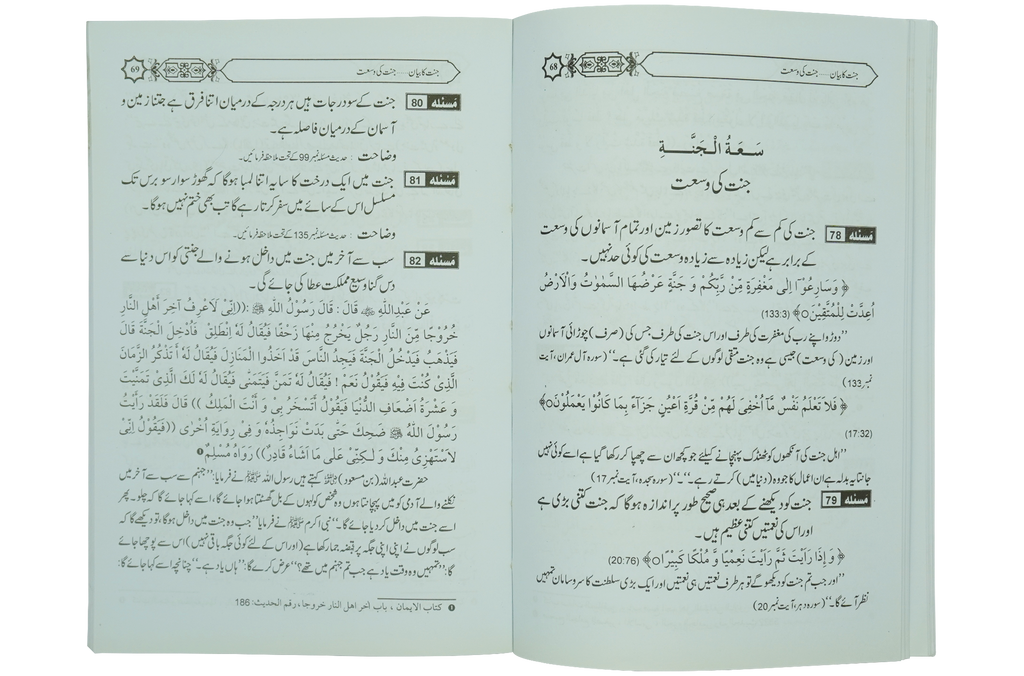 68 جنت کا بیان ..... جنت کی وسعت
سَعَةُ الْجَنَّةِ
جنت کی وسعت
مسئلہ 78 جنت کی کم سے کم وسعت کا تصور زمین اور تمام آسمانوں کی وسعت
کے برابر ہے لیکن زیادہ سے زیادہ وسعت کی کوئی حد نہیں۔
﴿ وَسَارِعُوْآ اِلٰى مَغْفِرَةٍ مِّنْ رَّبِّكُمْ وَ جَنَّةٍ عَرْضُهَا السَّمٰوٰتُ وَالْاَرْضُ
اُعِدَّتْ لِلْمُتَّقِيْنَ○﴾ (133:3)
’’دوڑو اپنے رب کی مغفرت کی طرف اور اس جنت کی طرف، جس کی (صرف) چوڑائی آسمانوں
اور زمین (کی وسعت) جیسی ہے وہ جنت متقی لوگوں کے لئے تیار کی گئی ہے۔‘‘ (سورہ آل عمران، آیت
نمبر 133)
﴿ فَلَا تَعْلَمُ نَفْسٌ مَّآ اُخْفِىَ لَهُمْ مِّنْ قُرَّةِ اَعْيُنٍ جَزَآءً بِمَا كَانُوْا يَعْمَلُوْنَ○﴾
(17:32)
’’اہل جنت کی آنکھوں کو ٹھنڈک پہنچانے کیلئے جو کچھ ان سے چھپا کر رکھا گیا ہے اسے کوئی نہیں
جانتا یہ بدلہ ہے ان اعمال کا جو وہ (دنیا میں) کرتے رہے۔‘‘ (سورہ سجدہ، آیت نمبر 17)
مسئلہ 79 جنت کو دیکھنے کے بعد ہی صحیح طور پر اندازہ ہوگا کہ جنت کتنی بڑی ہے
اور اس کی نعمتیں کتنی عظیم ہیں۔
﴿ وَ اِذَا رَاَيْتَ ثَمَّ رَاَيْتَ نَعِيْمًا وَّ مُلْكًا كَبِيْرًا○﴾ (20:76)
’’اور جب تم جنت کو دیکھو گے تو ہر طرف نعمتیں ہی نعمتیں اور ایک بڑی سلطنت کا سر و سامان تمہیں
نظر آئے گا۔‘‘ (سورہ دہر، آیت نمبر 20)
69 جنت کا بیان ..... جنت کی وسعت
مسئلہ 80 جنت کے سو درجات ہیں ہر درجہ کے درمیان اتنا فرق ہے جتنا زمین و
آسمان کے درمیان فاصلہ ہے۔
وضاحت : حدیث مسئلہ نمبر 99 کے تحت ملاحظہ فرمائیں۔
مسئلہ 81 جنت میں ایک درخت کا سایہ اتنا لمبا ہوگا کہ گھوڑ سوار سو برس تک
مسلسل اس کے سائے میں سفر کرتا رہے گا تب بھی ختم نہیں ہوگا۔
وضاحت : حدیث مسئلہ نمبر 135 کے تحت ملاحظہ فرمائیں۔
مسئلہ 82 سب سے آخر میں جنت میں داخل ہونے والے جنتی کو اس دنیا سے
دس گنا وسیع مملکت عطا کی جائے گی۔
عَنْ عَبْدِاللّٰهِ ؓ قَالَ : قَالَ رَسُوْلُ اللّٰهِ ﷺ :((اِنِّىْ لَاَعْرِفُ آخِرَ اَهْلِ النَّارِ
خُرُوْجًا مِّنَ النَّارِ رَجُلٌ يَخْرُجُ مِنْهَا زَحْفًا فَيُقَالُ لَهٗ اِنْطَلِقْ فَادْخُلِ الْجَنَّةَ قَالَ
فَيَذْهَبُ فَيَدْخُلُ الْجَنَّةَ فَيَجِدُ النَّاسَ قَدْ اَخَذُوا الْمَنَازِلَ فَيُقَالُ لَهٗ اَتَذْكُرُ الزَّمَانَ
الَّذِىْ كُنْتَ فِيْهِ فَيَقُوْلُ نَعَمْ ! فَيُقَالُ لَهٗ تَمَنَّ فَيَتَمَنّٰى فَيُقَالُ لَهٗ لَكَ الَّذِىْ تَمَنَّيْتَ
وَ عَشْرَةُ اَضْعَافِ الدُّنْيَا فَيَقُوْلُ اَتَسْخَرُ بِىْ وَ اَنْتَ الْمَلِكُ )) قَالَ فَلَقَدْ رَاَيْتُ
رَسُوْلَ اللّٰهِ ﷺ ضَحِكَ حَتّٰى بَدَتْ نَوَاجِذُهٗ وَ فِىْ رِوَايَةٍ اُخْرٰى ((فَيَقُوْلُ اِنِّىْ
لَا اَسْتَهْزِئُ مِنْكَ وَ لٰكِنِّىْ عَلٰى مَا اَشَآءُ قَادِرٌ)) رَوَاهُ مُسْلِمٌ ❶
حضرت عبداللہ (بن مسعود) ؓ کہتے ہیں رسول اللہ ﷺ نے فرمایا:’’جہنم سے سب سے آخر میں
نکلنے والے آدمی کو میں پہچانتا ہوں وہ شخص کولہوں کے بل گھسٹتا ہوا جائے گا، اسے کہا جائے گا کہ چلو۔ پھر
اسے جنت میں داخل کر دیا جائے گا۔‘‘ نبی اکرم ﷺ نے فرمایا ’’جب وہ جنت میں داخل ہوگا، تو دیکھے گا کہ
سب لوگوں نے اپنی اپنی جگہ پر قبضہ جما رکھا ہے (اور اس کے لئے کوئی جگہ باقی نہیں) اس سے پوچھا جائے
گا: ’’تمہیں وہ وقت یاد ہے جب تم جہنم میں تھے؟‘‘ عرض کرے گا: ’’ہاں یاد ہے۔‘‘ چنانچہ اسے کہا جائے گا:
❶ کتاب الایمان ، باب آخر اهل النار خروجا، رقم الحدیث: 186